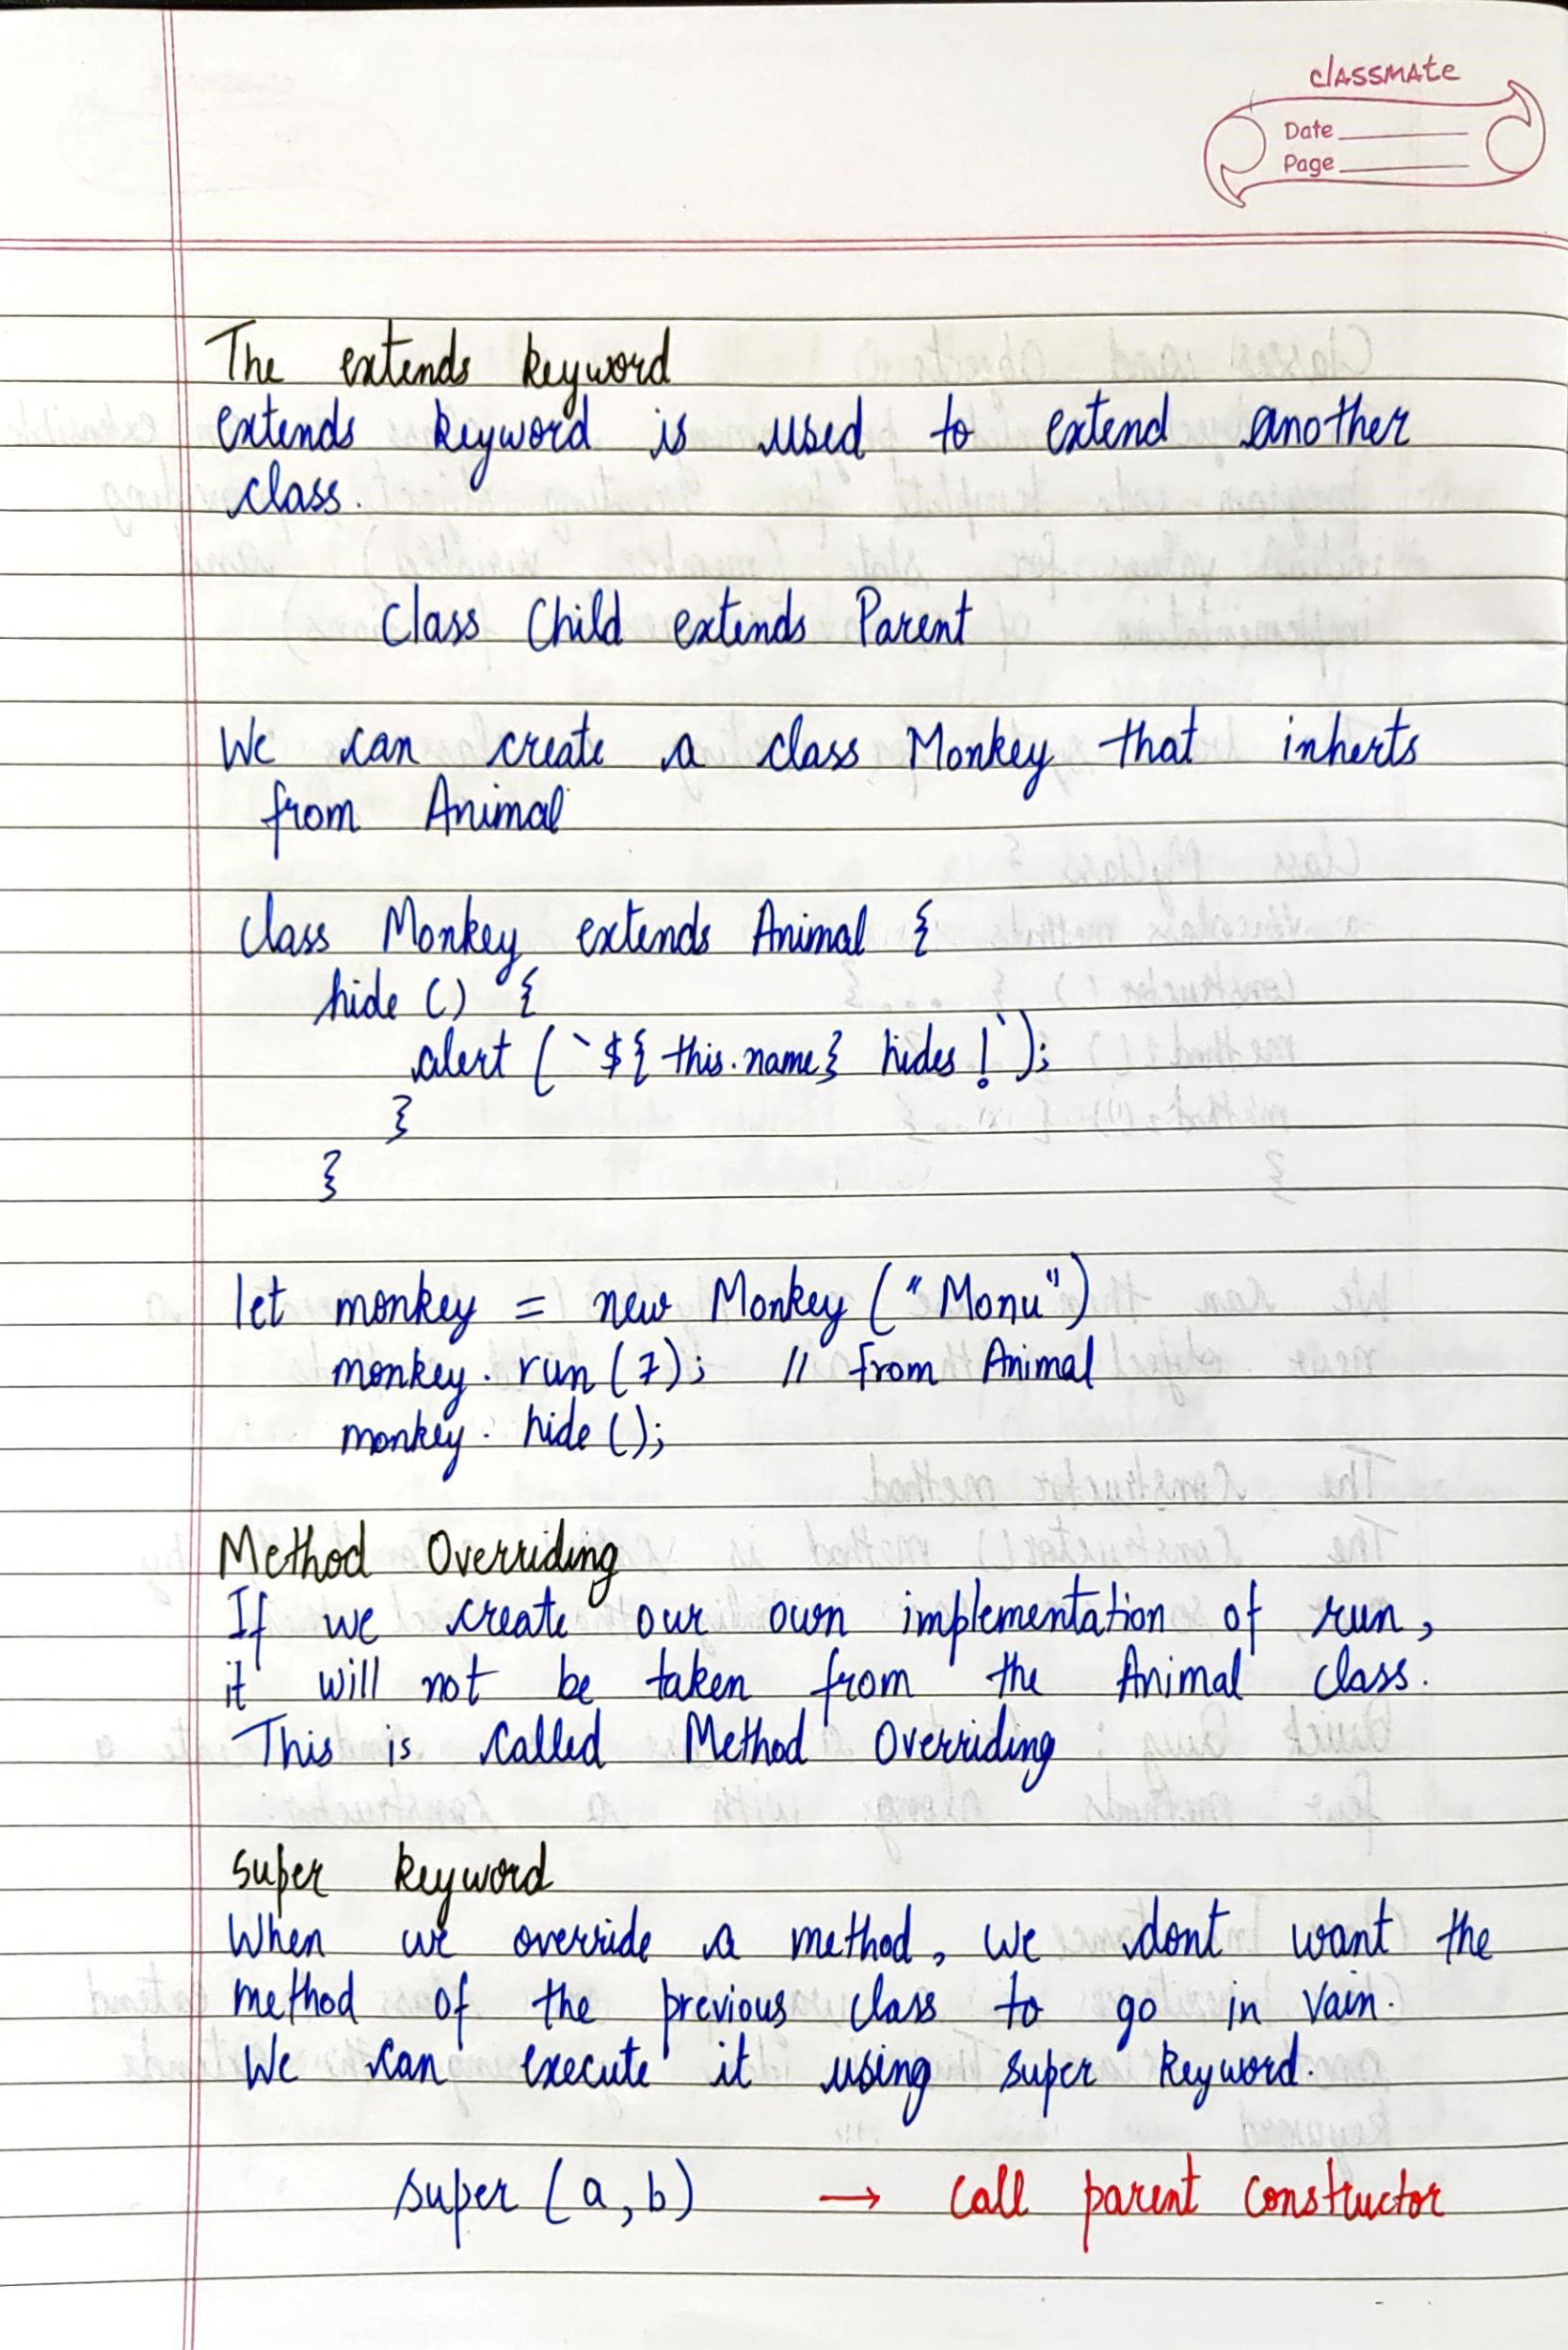 classmate
Date
Page
The extends keyword
extends keyword is used to extend another
class.
class Child extends Parent
We can create a class Monkey that inherts
from Animal
class Monkey extends Animal {
hide () {
alert (`${ this.name} hides !`);
}
}
let monkey = new Monkey ("Monu")
monkey. run (7); // from Animal
monkey. hide ();
Method Overriding
If we create our own implementation of run,
it will not be taken from the Animal class.
This is called Method Overriding
super keyword
When we override a method, we dont want the
method of the previous class to go in vain.
We can execute it using super keyword.
super (a, b) → call parent constructor